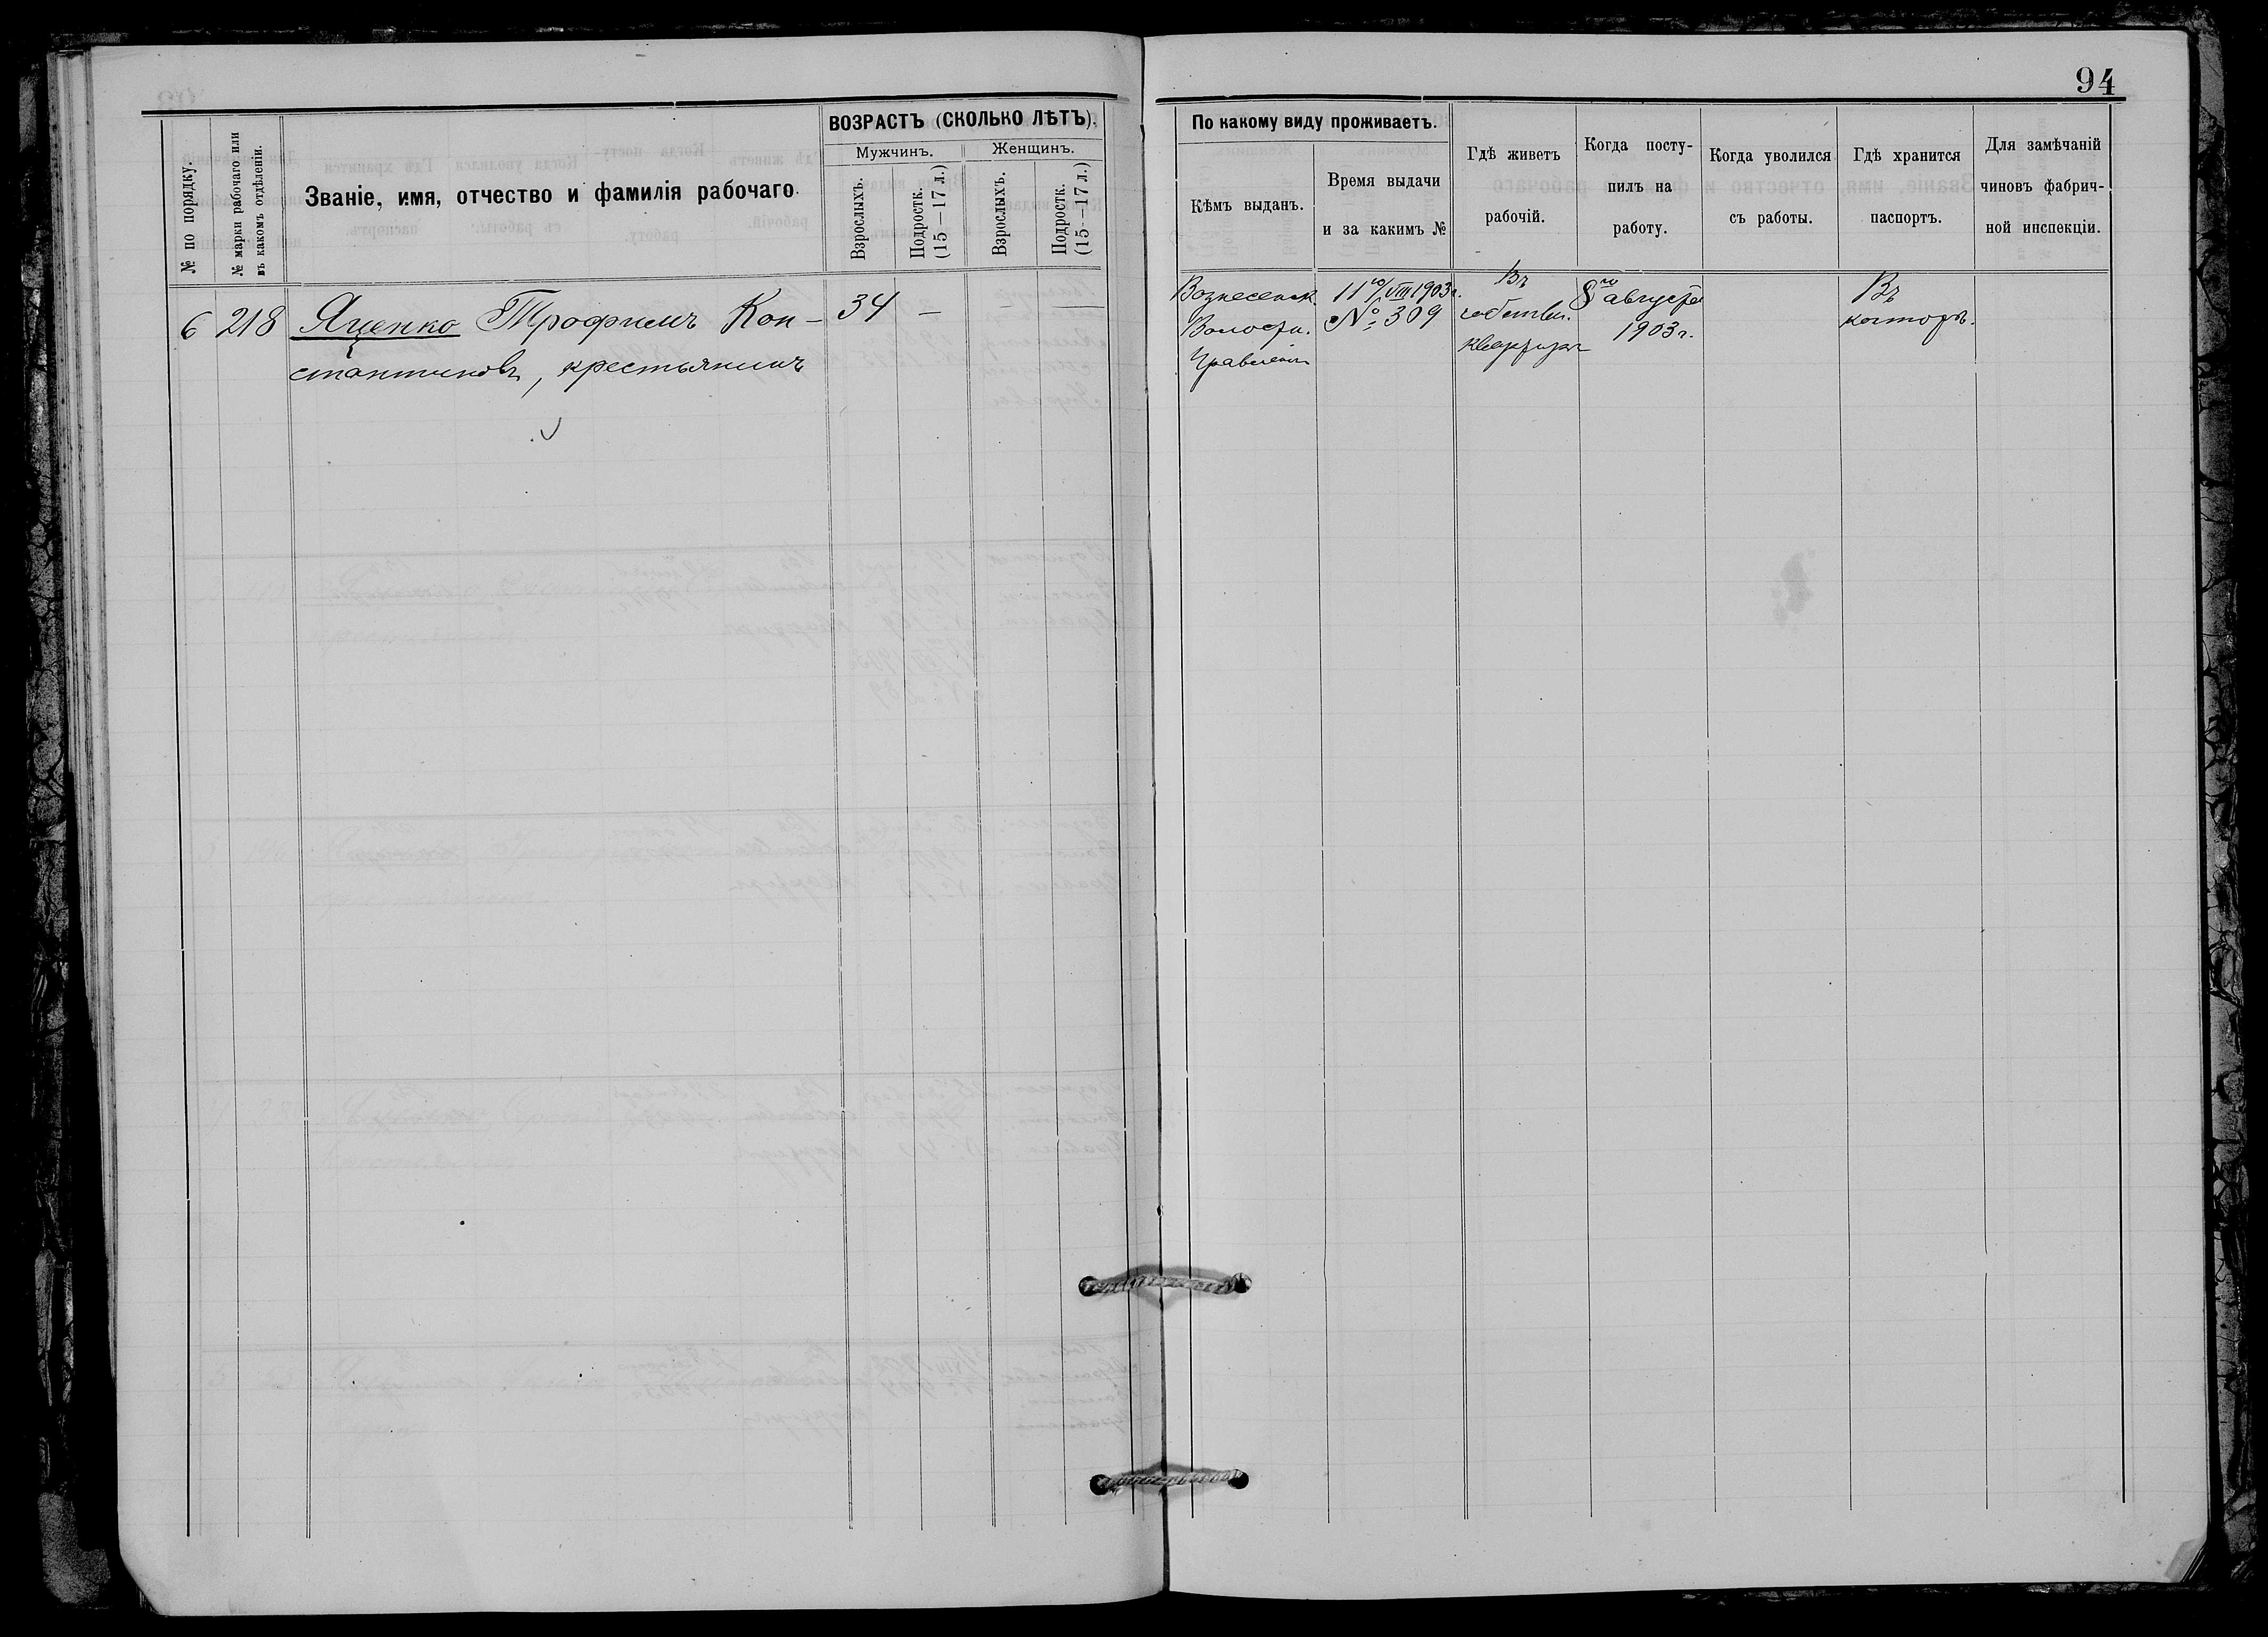 94
№ по порядку.
№ марки рабочаго или
въ какомъ отдѣленіи.
Званіе, имя, отчество и фамилія рабочаго.
ВОЗРАСТЪ (СКОЛЬКО ЛѢТЪ).
Мужчинъ.
Женщинъ.
Взрослыхъ.
Подростк.
(15—17 л.)
Взрослыхъ.
Подростк.
(15—17 л.)
По какому виду проживаетъ.
Кѣмъ выданъ.
Время выдачи
и за какимъ №
Гдѣ живетъ
рабочій.
Когда посту-
пилъ на
работу.
Когда уволился
съ работы.
Гдѣ хранится
паспортъ.
Для замѣчаній
чиновъ фабрич-
ной инспекціи.
6 218 Яценко Трофимъ Кон-
стантиновъ, крестьянинъ
34 — — —
Вознесенск.
Волостн.
Правленіем
11го/VIII 1903 г.
№ 309
Въ
собствен.
квартирѣ
8го августа
1903 г.
Въ
конторѣ.